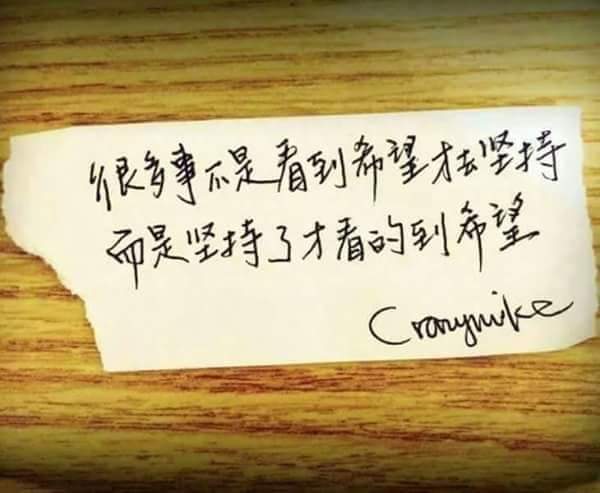 很多事不是看到希望才去坚持
而是坚持了才看的到希望
Crazymike